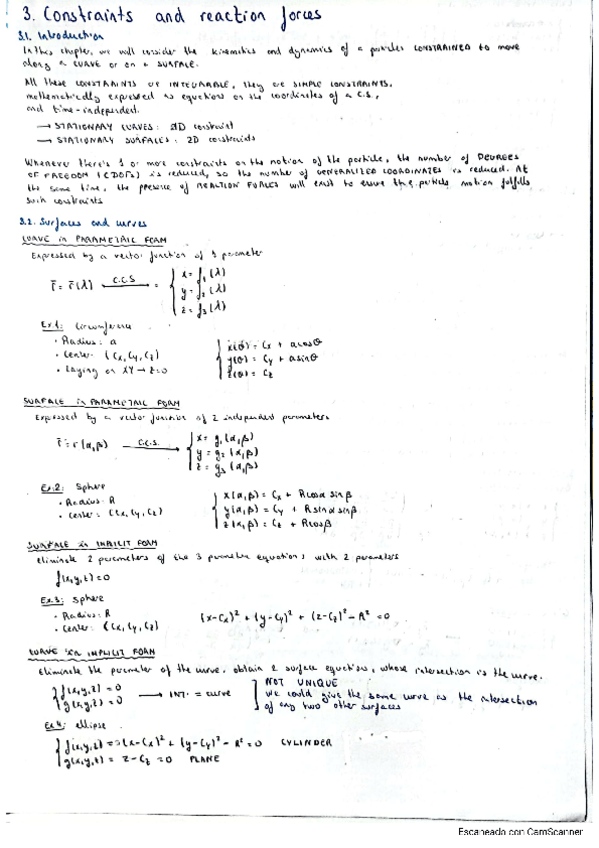 3. Constraints and reaction forces
3.1. Introduction
In this chapter, we will consider the kinematics and dynamics of a particles CONSTRAINED to move
along a CURVE or on a SURFACE.
All these CONSTRAINTS are INTEGRABLE, they are SIMPLE CONSTRAINTS,
mathematically expressed as equations on the coordinates of a C.S.,
and time-independent.
→ STATIONARY CURVES: 1D constraint
→ STATIONARY SURFACES: 2D constraints
Whenever there's 1 or more constraints on the motion of the particle, the number of DEGREES
OF FREEDOM (DOFs) is reduced, so the number of GENERALIZED COORDINATES is reduced. At
the same time, the presence of REACTION FORCES will exist to ensure the particle motion fulfills
such constraints
3.2. Surfaces and curves
CURVE in PARAMETRIC FORM
Expressed by a vector function of 1 parameter
r̄ = r̄(λ) C.C.S → = { x = f₁(λ)
y = f₂(λ)
z = f₃(λ)
Ex.1: Circumference
• Radius: a
• Center: (Cx, Cy, Cz)
• Laying on XY → z=0
{ x(θ) = Cx + a cosθ
y(θ) = Cy + a sinθ
z(θ) = Cz
SURFACE in PARAMETRIC FORM
Expressed by a vector function of 2 independent parameters
r̄ = r(α,β) C.C.S. → { x = g₁(α,β)
y = g₂(α,β)
z = g₃(α,β)
Ex.2: Sphere
• Radius: R
• Center: (Cx, Cy, Cz)
{ x(α,β) = Cx + R cosα sinβ
y(α,β) = Cy + R sinα sinβ
z(α,β) = Cz + R cosβ
SURFACE in IMPLICIT FORM
eliminate 2 parameters of the 3 parametric equations with 2 parameters
f(x,y,z) = 0
Ex.3: Sphere
• Radius: R
• Center: (Cx, Cy, Cz)
(x-Cx)² + (y-Cy)² + (z-Cz)² - R² = 0
CURVE in IMPLICIT FORM
Eliminate the parameter of the curve, obtain 2 surface equations, whose intersection is the curve.
{ f(x,y,z) = 0
g(x,y,z) = 0
→ INT. = curve
NOT UNIQUE
we could give the same curve as the intersection
of any two other surfaces
Ex.4: ellipse
{ f(x,y,z) = (x-Cx)² + (y-Cy)² - R² = 0 CYLINDER
g(x,y,z) = z-Cz = 0 PLANE
Escaneado con CamScanner